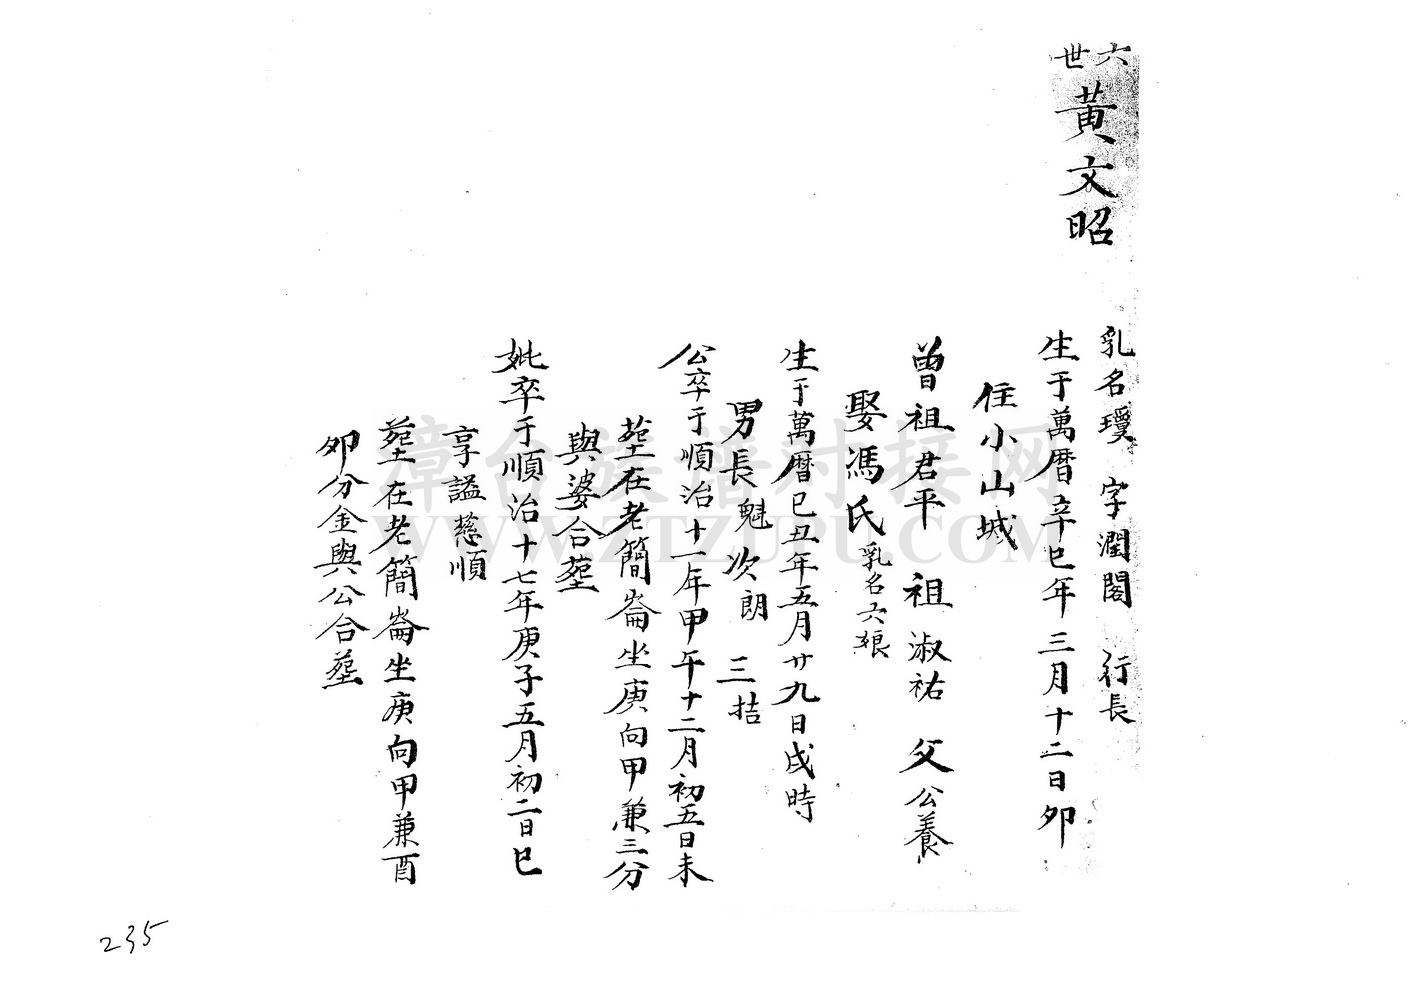 六世
黃文昭
乳名瓊 字潤閣 行長
生于萬曆辛巳年三月十二日卯
住小山城
曾祖君平 祖淑祐 父公養
娶馮氏乳名六娘
生于萬曆己丑年五月廿九日戌時
男長魁 次朗 三拮
公卒于順治十一年甲午十二月初五日未
塟在老簡崙坐庚向甲兼三分
與婆合塟
妣卒于順治十七年庚子五月初二日巳
享謚慈順
塟在老簡崙坐庚向甲兼酉
卯分金與公合塟
漳台族谱对接网
WWW.ZTZUPU.COM
235